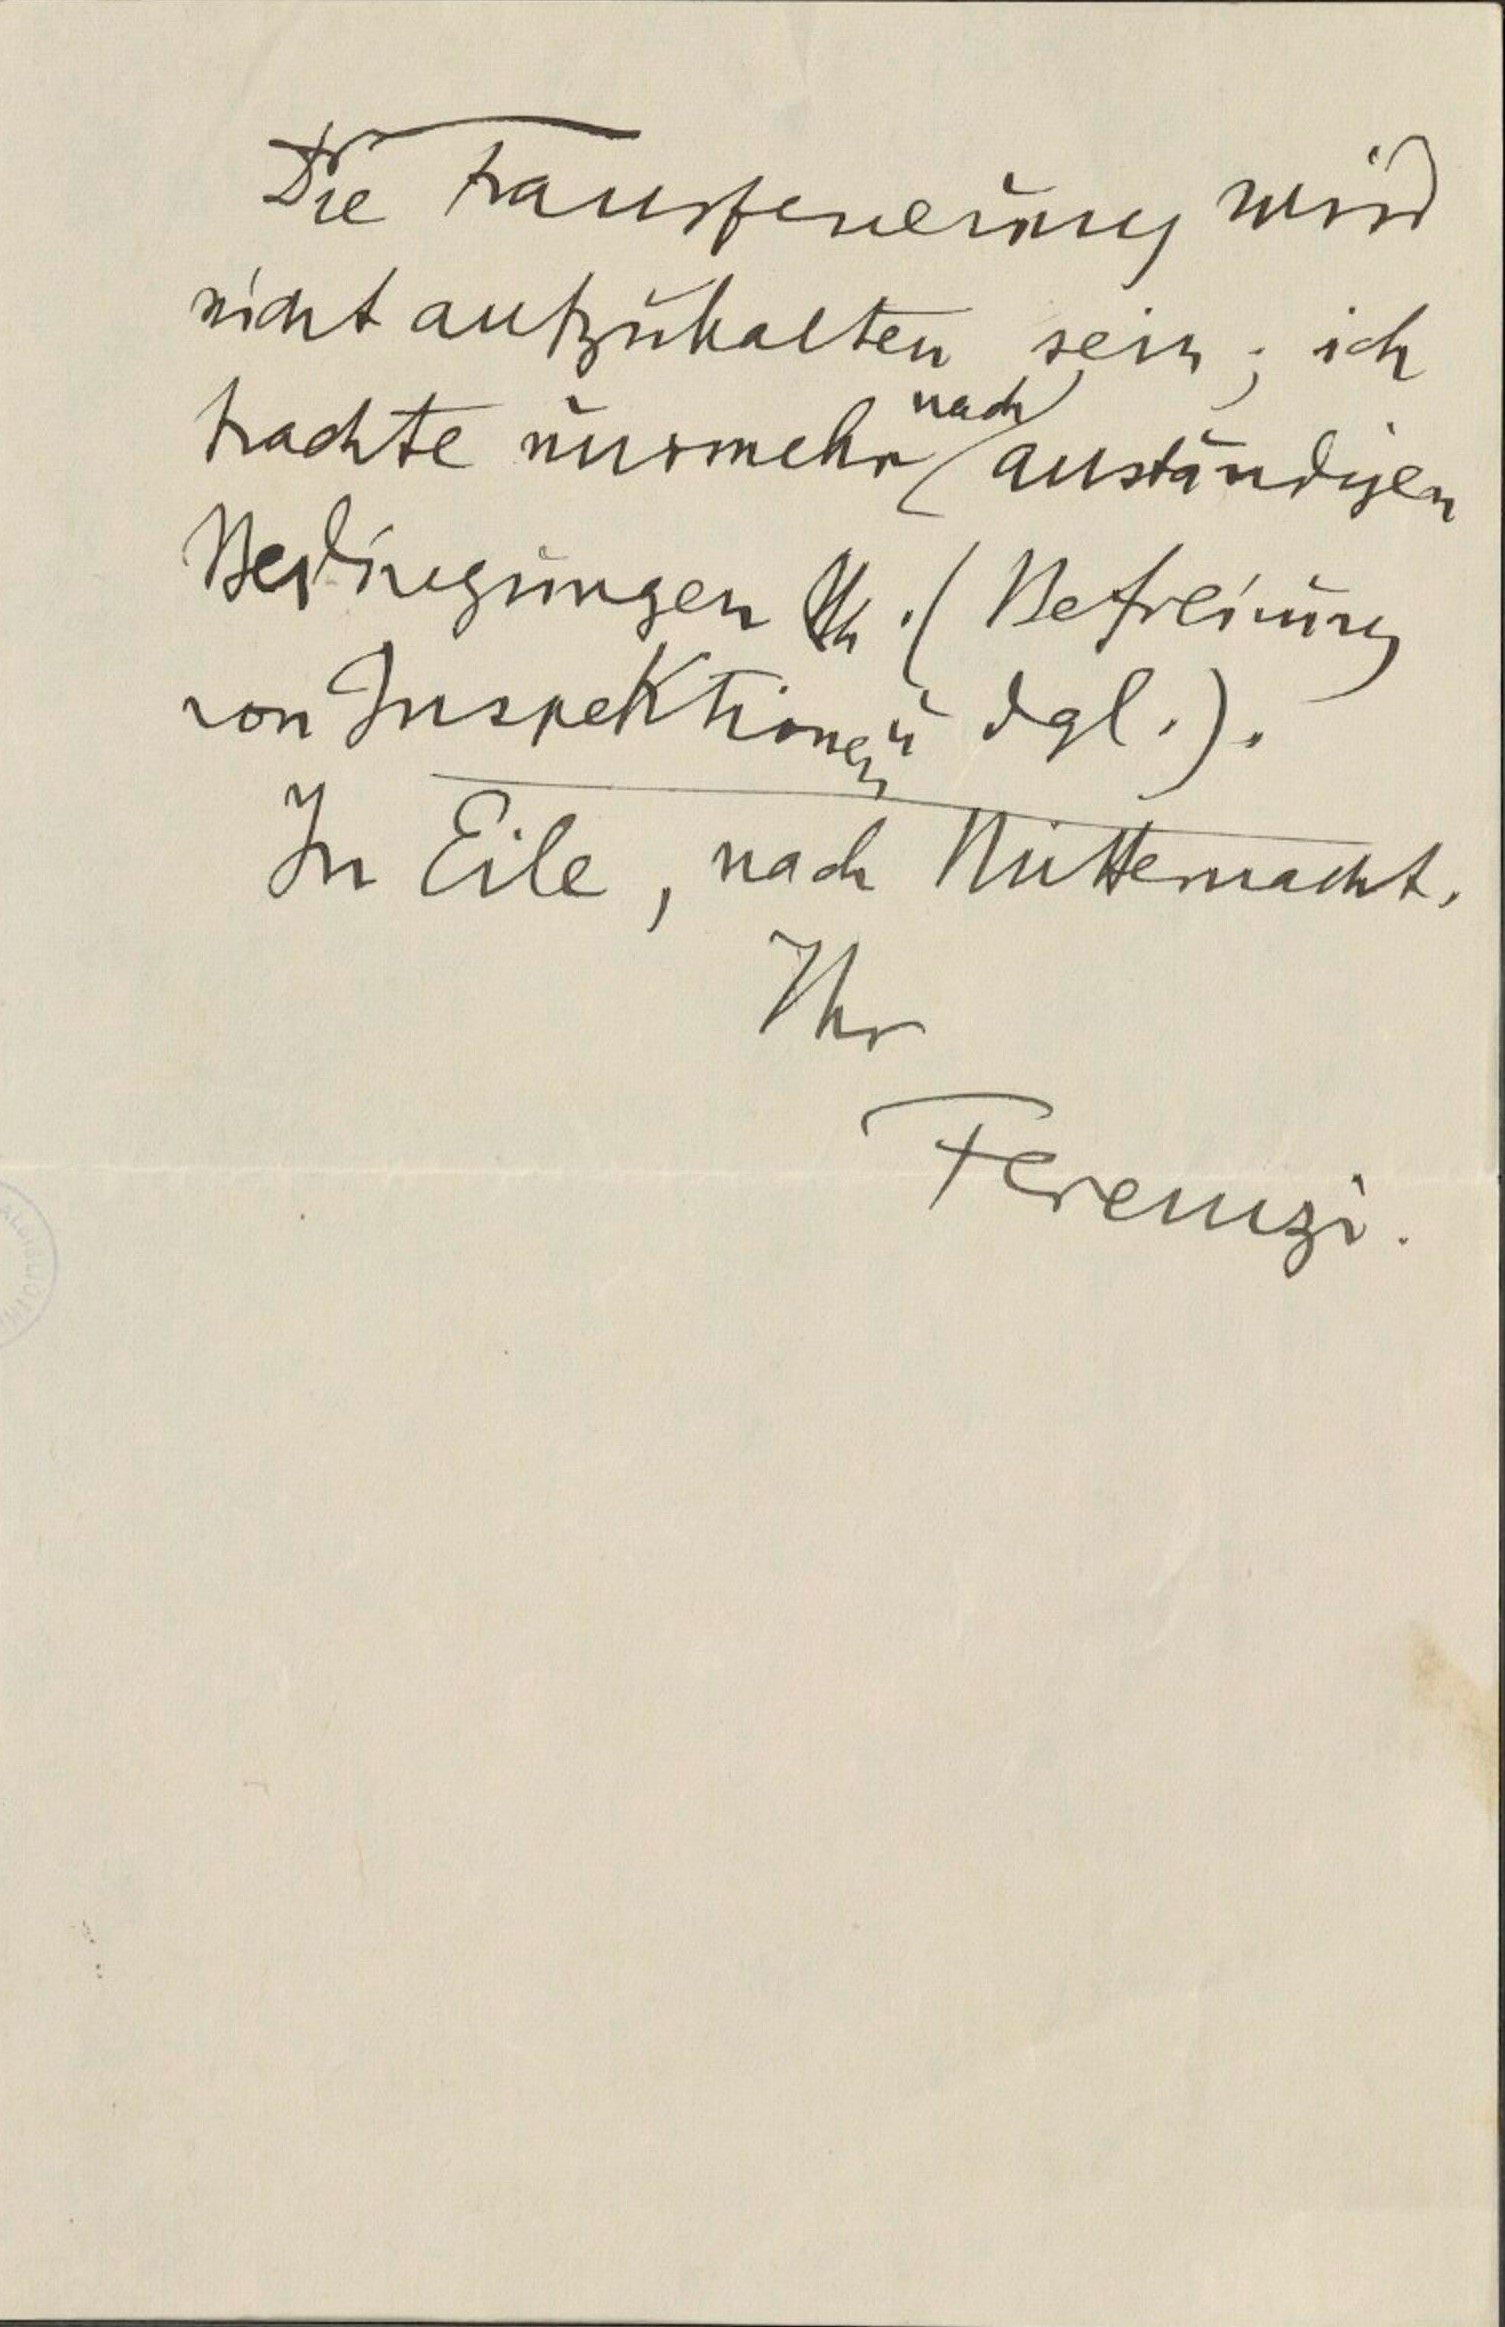 Die Transferierung wird
nicht aufzuhalten sein; ich
trachte nurmehr nach anständigen
Bedingungen. (Befreiung
von Inspektionen u dgl.).
In Eile, nach Mitternacht,
Ihr
Ferenczi.